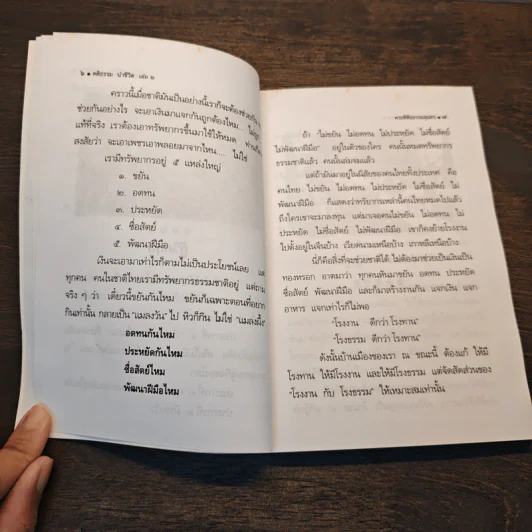 ๖ • คติธรรม นำชีวิต เล่ม ๒
คราวนี้เมื่อชาติมันเป็นอย่างนี้เราก็จะต้องช่วย
ช่วยกันอย่างไร จะเอาเงินมาแจกกันถูกต้องไหม ไม่ถูก
แท้ที่จริง เราต้องเอาทรัพยากรขึ้นมาใช้ให้หมด
สงสัยว่า จะเอาเพชรเอาพลอยมาจากไหน.... ไม่ใช่
เรามีทรัพยากรอยู่ ๕ แหล่งใหญ่
๑. ขยัน
๒. อดทน
๓. ประหยัด
๔. ซื่อสัตย์
๕. พัฒนาฝีมือ
เงินจะเอามาเท่าไรก็ตามไม่เป็นประโยชน์เลย
ทุกคน คนในชาติไทยเรามีทรัพยากรธรรมชาติอยู่
จริง ๆ ว่า เดี๋ยวนี้ขยันกันไหม ขยันก็เฉพาะตอนที่อยาก
กินเท่านั้น กลายเป็น "แมลงวัน" ไป หิวก็กิน ไม่ใช่ "แมลงผึ้ง"
อดทนกันไหม
ประหยัดกันไหม
ซื่อสัตย์ไหม
พัฒนาฝีมือไหม
ถ้า "ไม่ขยัน ไม่อดทน ไม่ประหยัด ไม่ซื่อสัตย์
ไม่พัฒนาฝีมือ" อยู่ในตัวของใคร คนนั้นหมดทรัพยากร
ธรรมชาติแล้ว คนนั้นล่มจมแล้ว
แต่ถ้ามันมาอยู่ในนิสัยของคนไทยทั้งประเทศ คือ
คนไทย ไม่ขยัน ไม่อดทน ไม่ประหยัด ไม่ซื่อสัตย์ ไม่
พัฒนาฝีมือ ก็แสดงว่าทรัพยากรเหล่านี้คนไทยหมดไปแล้ว
ถึงใครเขาจะมาลงทุน แต่มาเจอคนไม่ขยัน ไม่อดทน ไม่
ประหยัด ไม่ซื่อสัตย์ ไม่พัฒนาฝีมือ เขาก็คงย้ายโรงงาน
ไปตั้งอยู่ในจีนบ้าง เวียดนามเหนือบ้าง เกาหลีเหนือบ้าง
นี่ก็คือสิ่งที่จะช่วยชาติได้ ไม่ต้องมาช่วยเป็นเงินเป็น
ทองหรอก อาตมาว่า ทุกคนหันมาขยัน อดทน ประหยัด
ซื่อสัตย์ พัฒนาฝีมือ และก็มาสร้างงานกัน แจกเงิน แจก
อาหาร แจกเท่าไรก็ไม่พอ
"โรงงาน ดีกว่า โรงทาน"
"โรงธรรม ดีกว่า โรงทาน"
ดังนั้นบ้านเมืองของเรา ณ ขณะนี้ ต้องแก้ ให้มี
โรงทาน ให้มีโรงงาน และให้มีโรงธรรม แต่จัดสัดส่วนของ
"โรงงาน กับ โรงธรรม" ให้เหมาะสมเท่านั้น